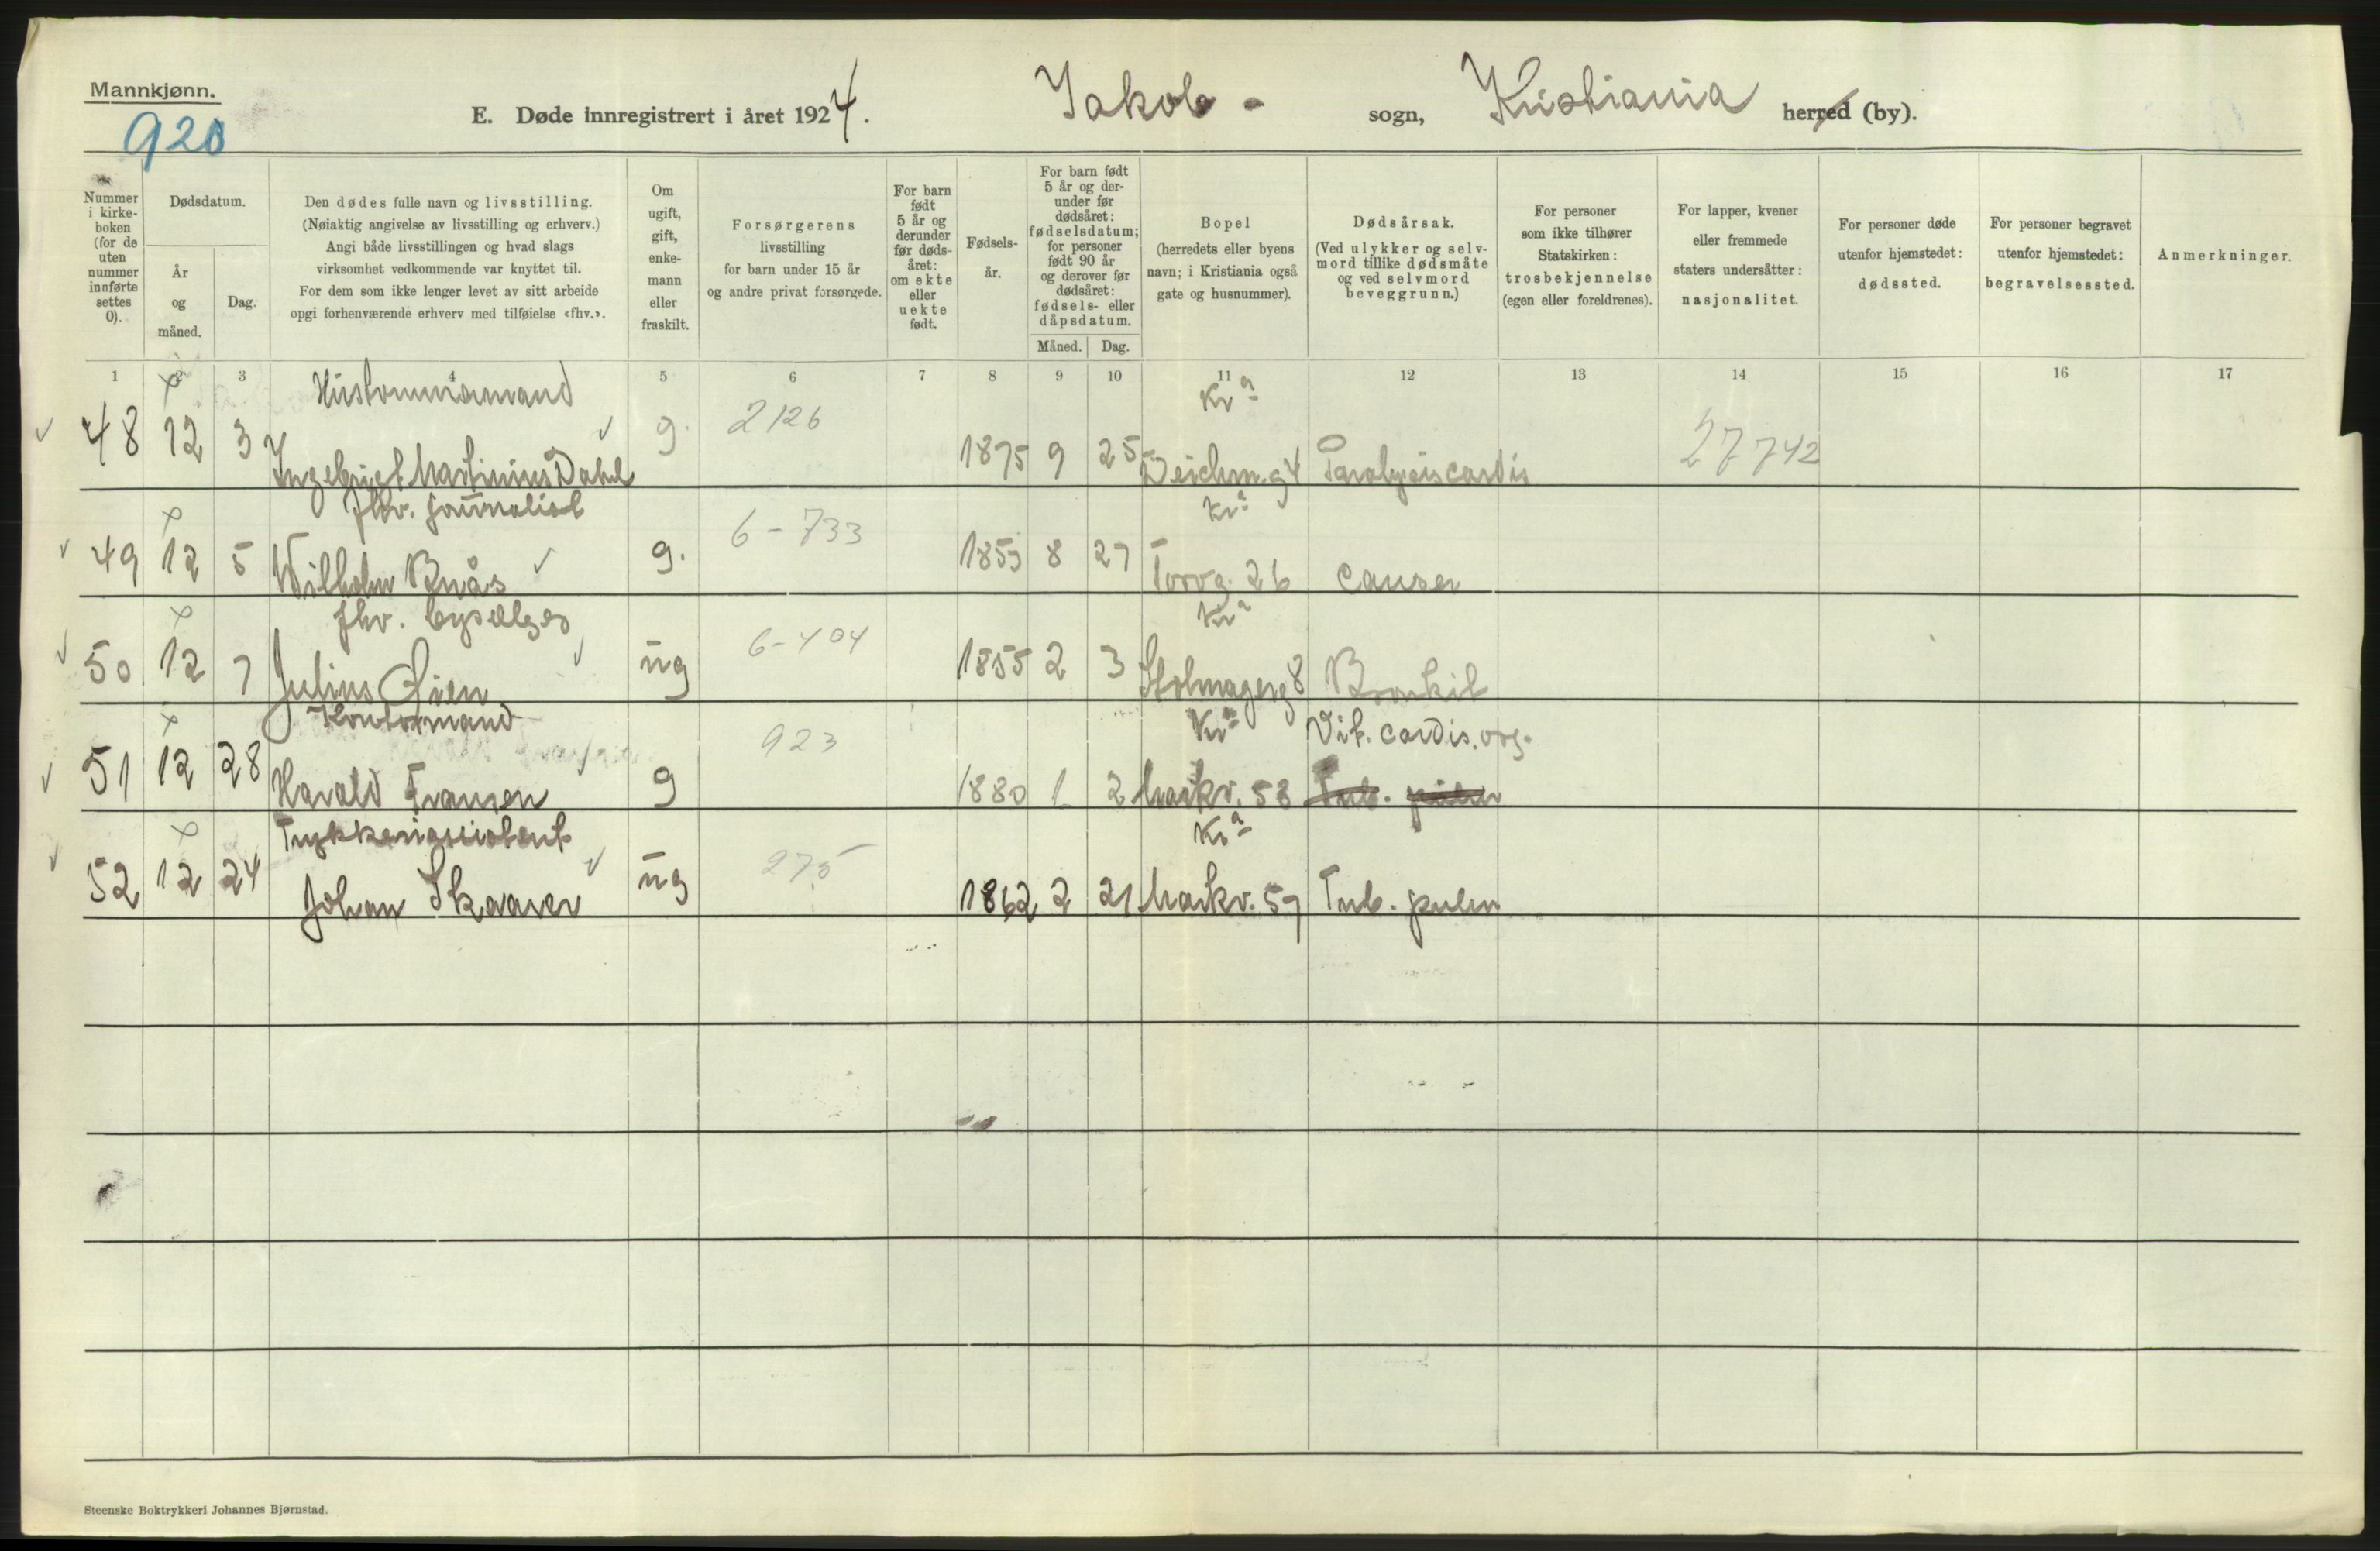 Mannkjønn.
920
E. Døde innregistrert i året 1924. Jakob - sogn, Kristiania herred (by).
Nummer i kirkeboken (for de uten nummer innførte settes 0).
Dødsdatum.
År og måned.
Dag.
Den dødes fulle navn og livsstilling.
(Nøiaktig angivelse av livsstilling og erhverv.)
Angi både livsstillingen og hvad slags
virksomhet vedkommende var knyttet til.
For dem som ikke lenger levet av sitt arbeide
opgi forhenværende erhverv med tilføielse «fhv.».
Om ugift, gift, enkemann eller fraskilt.
Forsørgerens
livsstilling
for barn under 15 år
og andre privat forsørgede.
For barn født 5 år og derunder før dødsåret: om ekte eller uekte født.
Fødselsår.
For barn født 5 år og derunder før dødsåret: fødselsdatum; for personer født 90 år og derover før dødsåret: fødsels- eller dåpsdatum.
Måned. Dag.
Bopel
(herredets eller byens
navn; i Kristiania også
gate og husnummer).
Dødsårsak.
(Ved ulykker og selvmord tillike dødsmåte og ved selvmord beveggrunn.)
For personer
som ikke tilhører
Statskirken:
trosbekjennelse
(egen eller foreldrenes).
For lapper, kvener
eller fremmede
staters undersåtter:
nasjonalitet.
For personer døde
utenfor hjemstedet:
dødssted.
For personer begravet
utenfor hjemstedet:
begravelsessted.
Anmerkninger.
1 2 3 4 5 6 7 8 9 10 11 12 13 14 15 16 17
Kra
48 12 3 g. 2126 27742
Ingebrigt Martinius Dahl 1875 9 25 Deichm.g 4 Paralysis cordis
fhv. journalist Kra
49 12 5 Wilhelm Knås g. 6-733 1859 8 27 Torvg. 26 Cancer
fhv. byselger Kra
50 12 7 Julius Øien ug 6-404 1855 2 3 Stolmagerg 8 Bronkit
Kontormand Kra Vit. cordis. org.
51 12 28 Harald Fransen g 923 1880 1 2 Markv. 58 Tub. pulm
Trykkeriassistent Kra
52 12 24 Johan Skaarer ug 275 1862 2 21 Markv. 57 Tub. pulm
Steenske Boktrykkeri Johannes Bjørnstad.